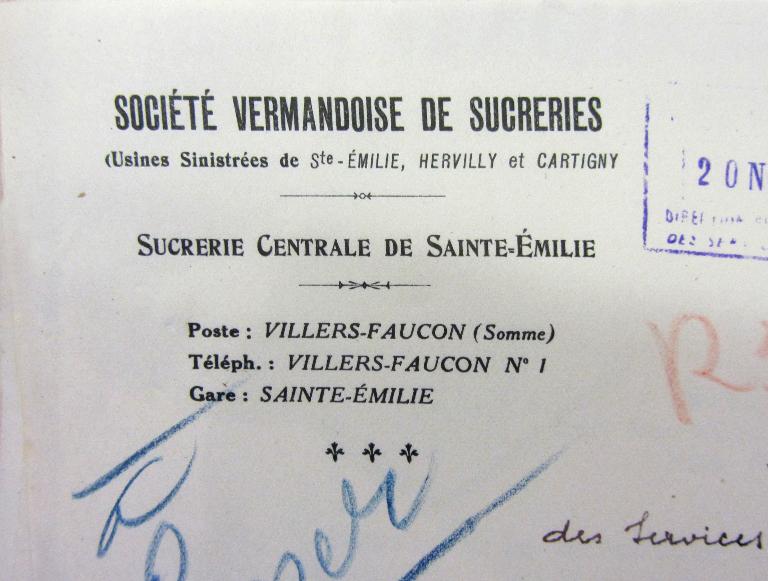 SOCIÉTÉ VERMANDOISE DE SUCRERIES
(Usines Sinistrées de Ste-ÉMILIE, HERVILLY et CARTIGNY
20 N
SUCRERIE CENTRALE DE SAINTE-ÉMILIE
Poste : VILLERS-FAUCON (Somme)
Téléph. : VILLERS-FAUCON N° 1
Gare : SAINTE-ÉMILIE
des Services